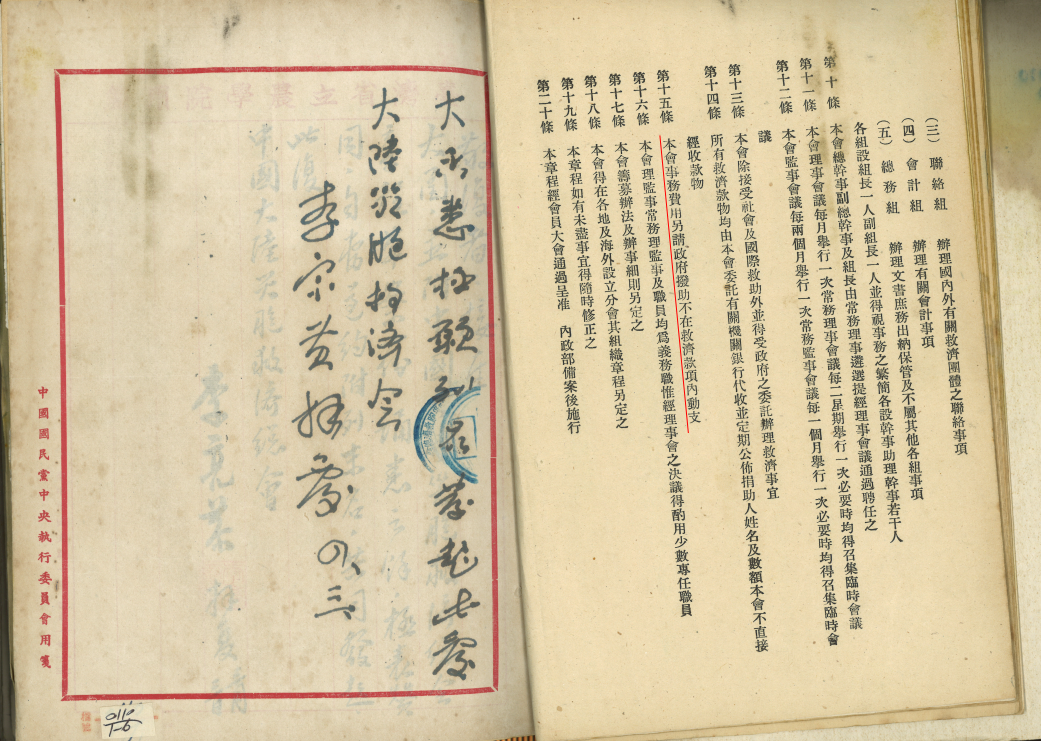 （三） 聯絡組 辦理國內外有關救濟團體之聯絡事項
（四） 會計組 辦理有關會計事項
（五） 總務組 辦理文書庶務出納保管及不屬其他各組事項
各組設組長一人副組長一人並得視事務之繁簡各設幹事助理幹事若干人
第十條 本會總幹事副總幹事及組長由常務理事遴選提經理事會議通過聘任之
第十一條 本會理事會議每月舉行一次常務理事會議每二星期舉行一次必要時均得召集臨時會議
第十二條 本會監事會議每兩個月舉行一次常務監事會議每一個月舉行一次必要時均得召集臨時會
議
第十三條 本會除接受社會及國際救助外並得受政府之委託辦理救濟事宜
第十四條 所有救濟款物均由本會委託有關機關銀行代收並定期公佈捐助人姓名及數額本會不直接
經收款物
第十五條 本會事務費用另請政府撥助不在救濟款項內動支
第十六條 本會理監事常務理監事及職員均爲義務職惟經理事會之決議得酌用少數專任職員
第十七條 本會籌募辦法及辦事細則另定之
第十八條 本會得在各地及海外設立分會其組織章程另定之
第十九條 本章程如有未盡事宜得隨時修正之
第二十條 本章程經會員大會通過呈准 內政部備案後施行
大示悉極願列名發起此覆
大陸災胞救濟會
李宗黃拜啓 四、三
中國國民黨中央執行委員會用箋